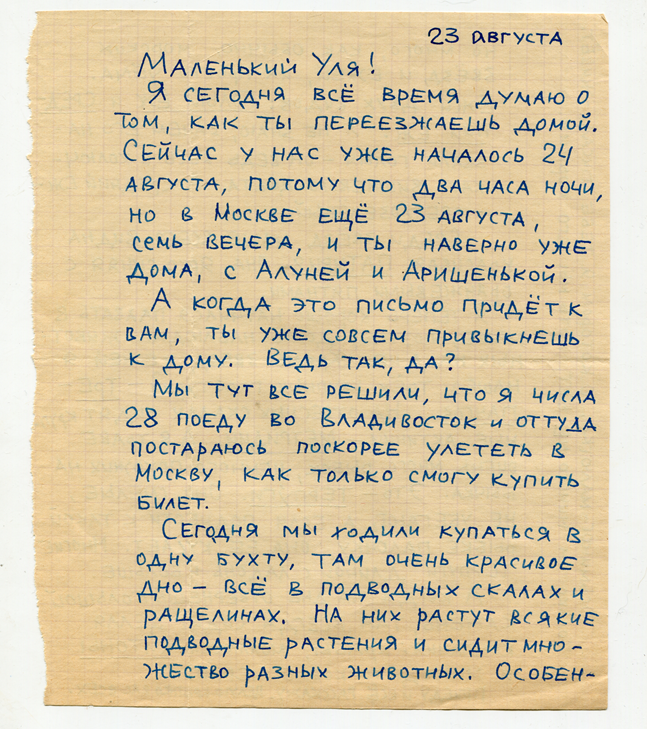 23 августа
Маленький Уля!
Я сегодня всё время думаю о
том, как ты переезжаешь домой.
Сейчас у нас уже началось 24
августа, потому что два часа ночи,
но в Москве ещё 23 августа,
семь вечера, и ты наверно уже
дома, с Алуней и Аришенькой.
А когда это письмо придёт к
вам, ты уже совсем привыкнешь
к дому. Ведь так, да?
Мы тут все решили, что я числа
28 поеду во Владивосток и оттуда
постараюсь поскорее улететь в
Москву, как только смогу купить
билет.
Сегодня мы ходили купаться в
одну бухту, там очень красивое
дно – всё в подводных скалах и
ращелинах. На них растут всякие
подводные растения и сидит мно-
жество разных животных. Особен-